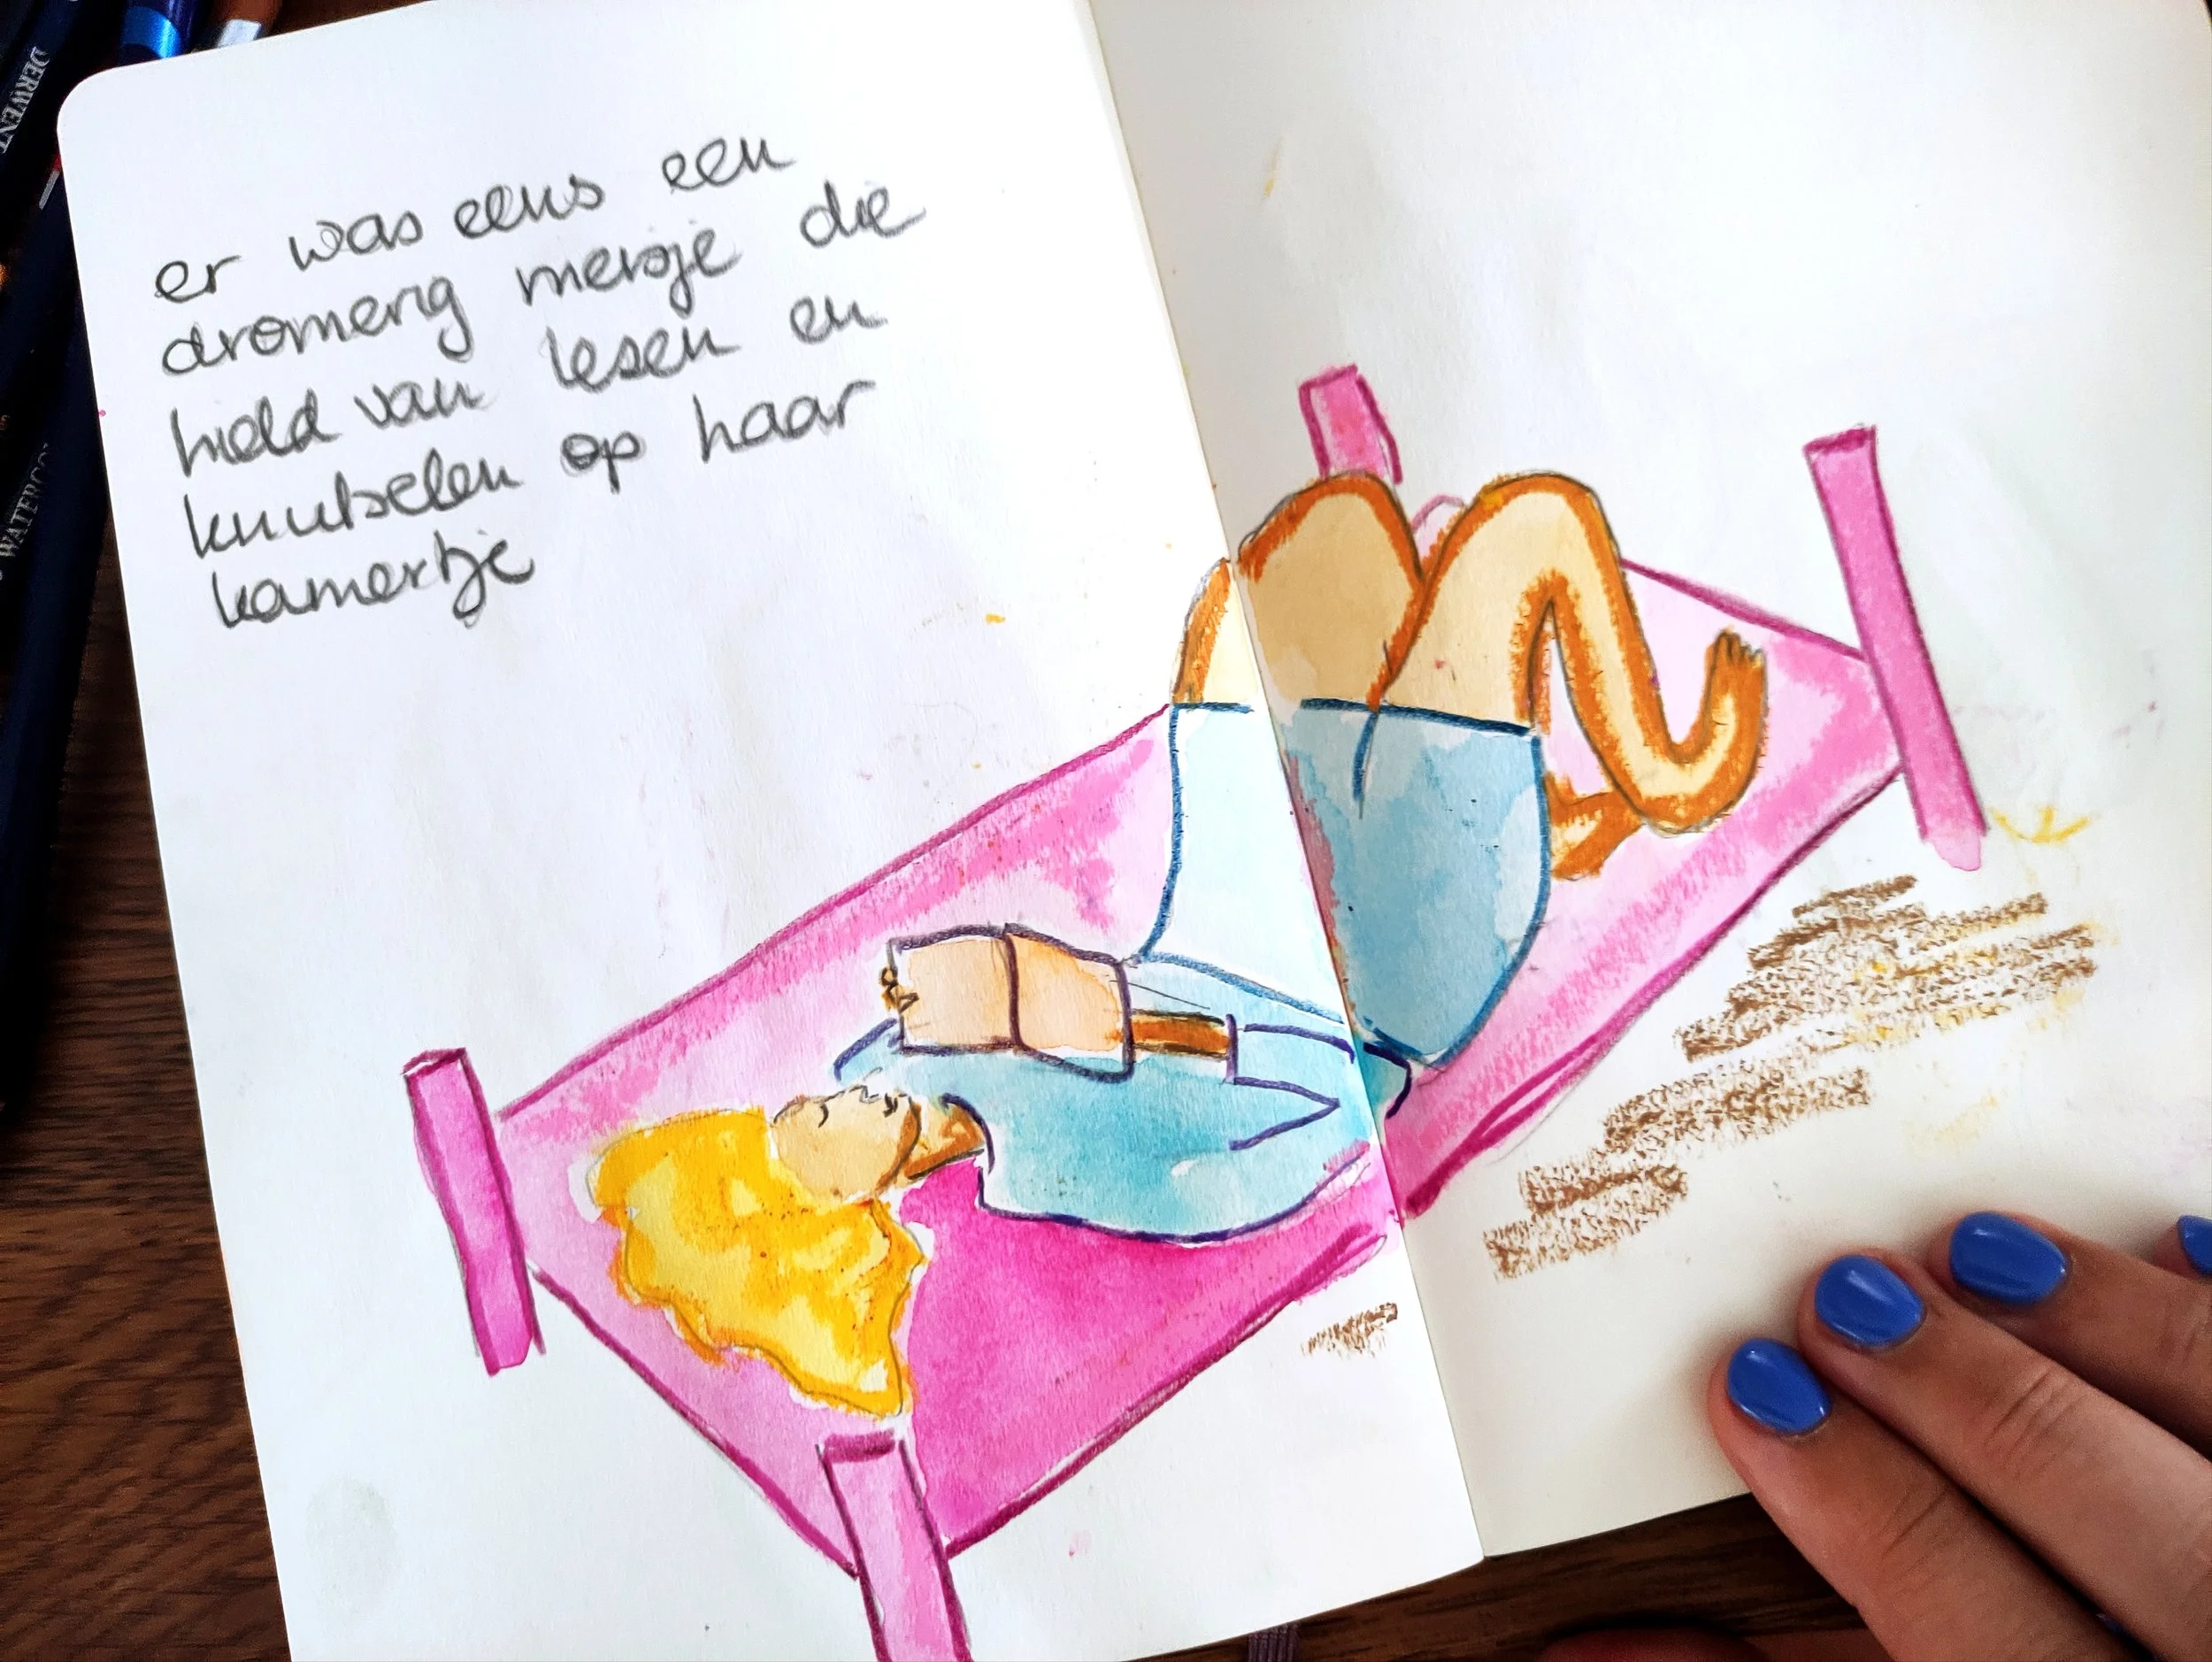 er was eens een
dromerig meisje die
hield van lezen en
knutselen op haar
kamertje
DERWENT
WATERCO